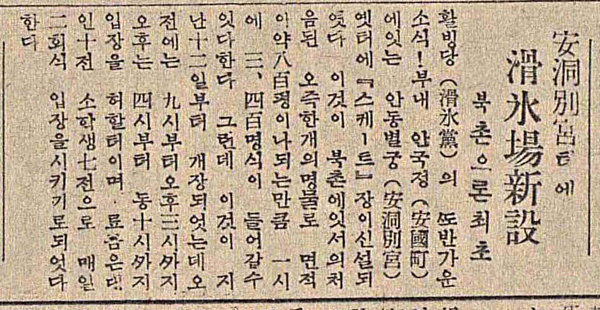 安洞別宮터에
滑氷場新設
북촌으론최초
활빙당(滑氷黨)의 ᄯᅩ반가운
소식!부내 안국정(安國町)
에잇는 안동별궁(安洞別宮)
옛터에『스케ー트』장이신설되
엿다 이것이 북촌에잇서의처
음된 오즉한개의명물로 면적
이약八百평이나되는만큼 一시
에 三、四百명식이 들어갈수
잇다한다 그런데 이것이 지
난十二일부터 개장되엿는데오
전에는 九시부터오후三시까지
오후는 四시부터 동十시까지
입장을 허할터이며 료금은대
인十전 소학생七전으로 매일
二회식 입장을시키기로되엿다
한다